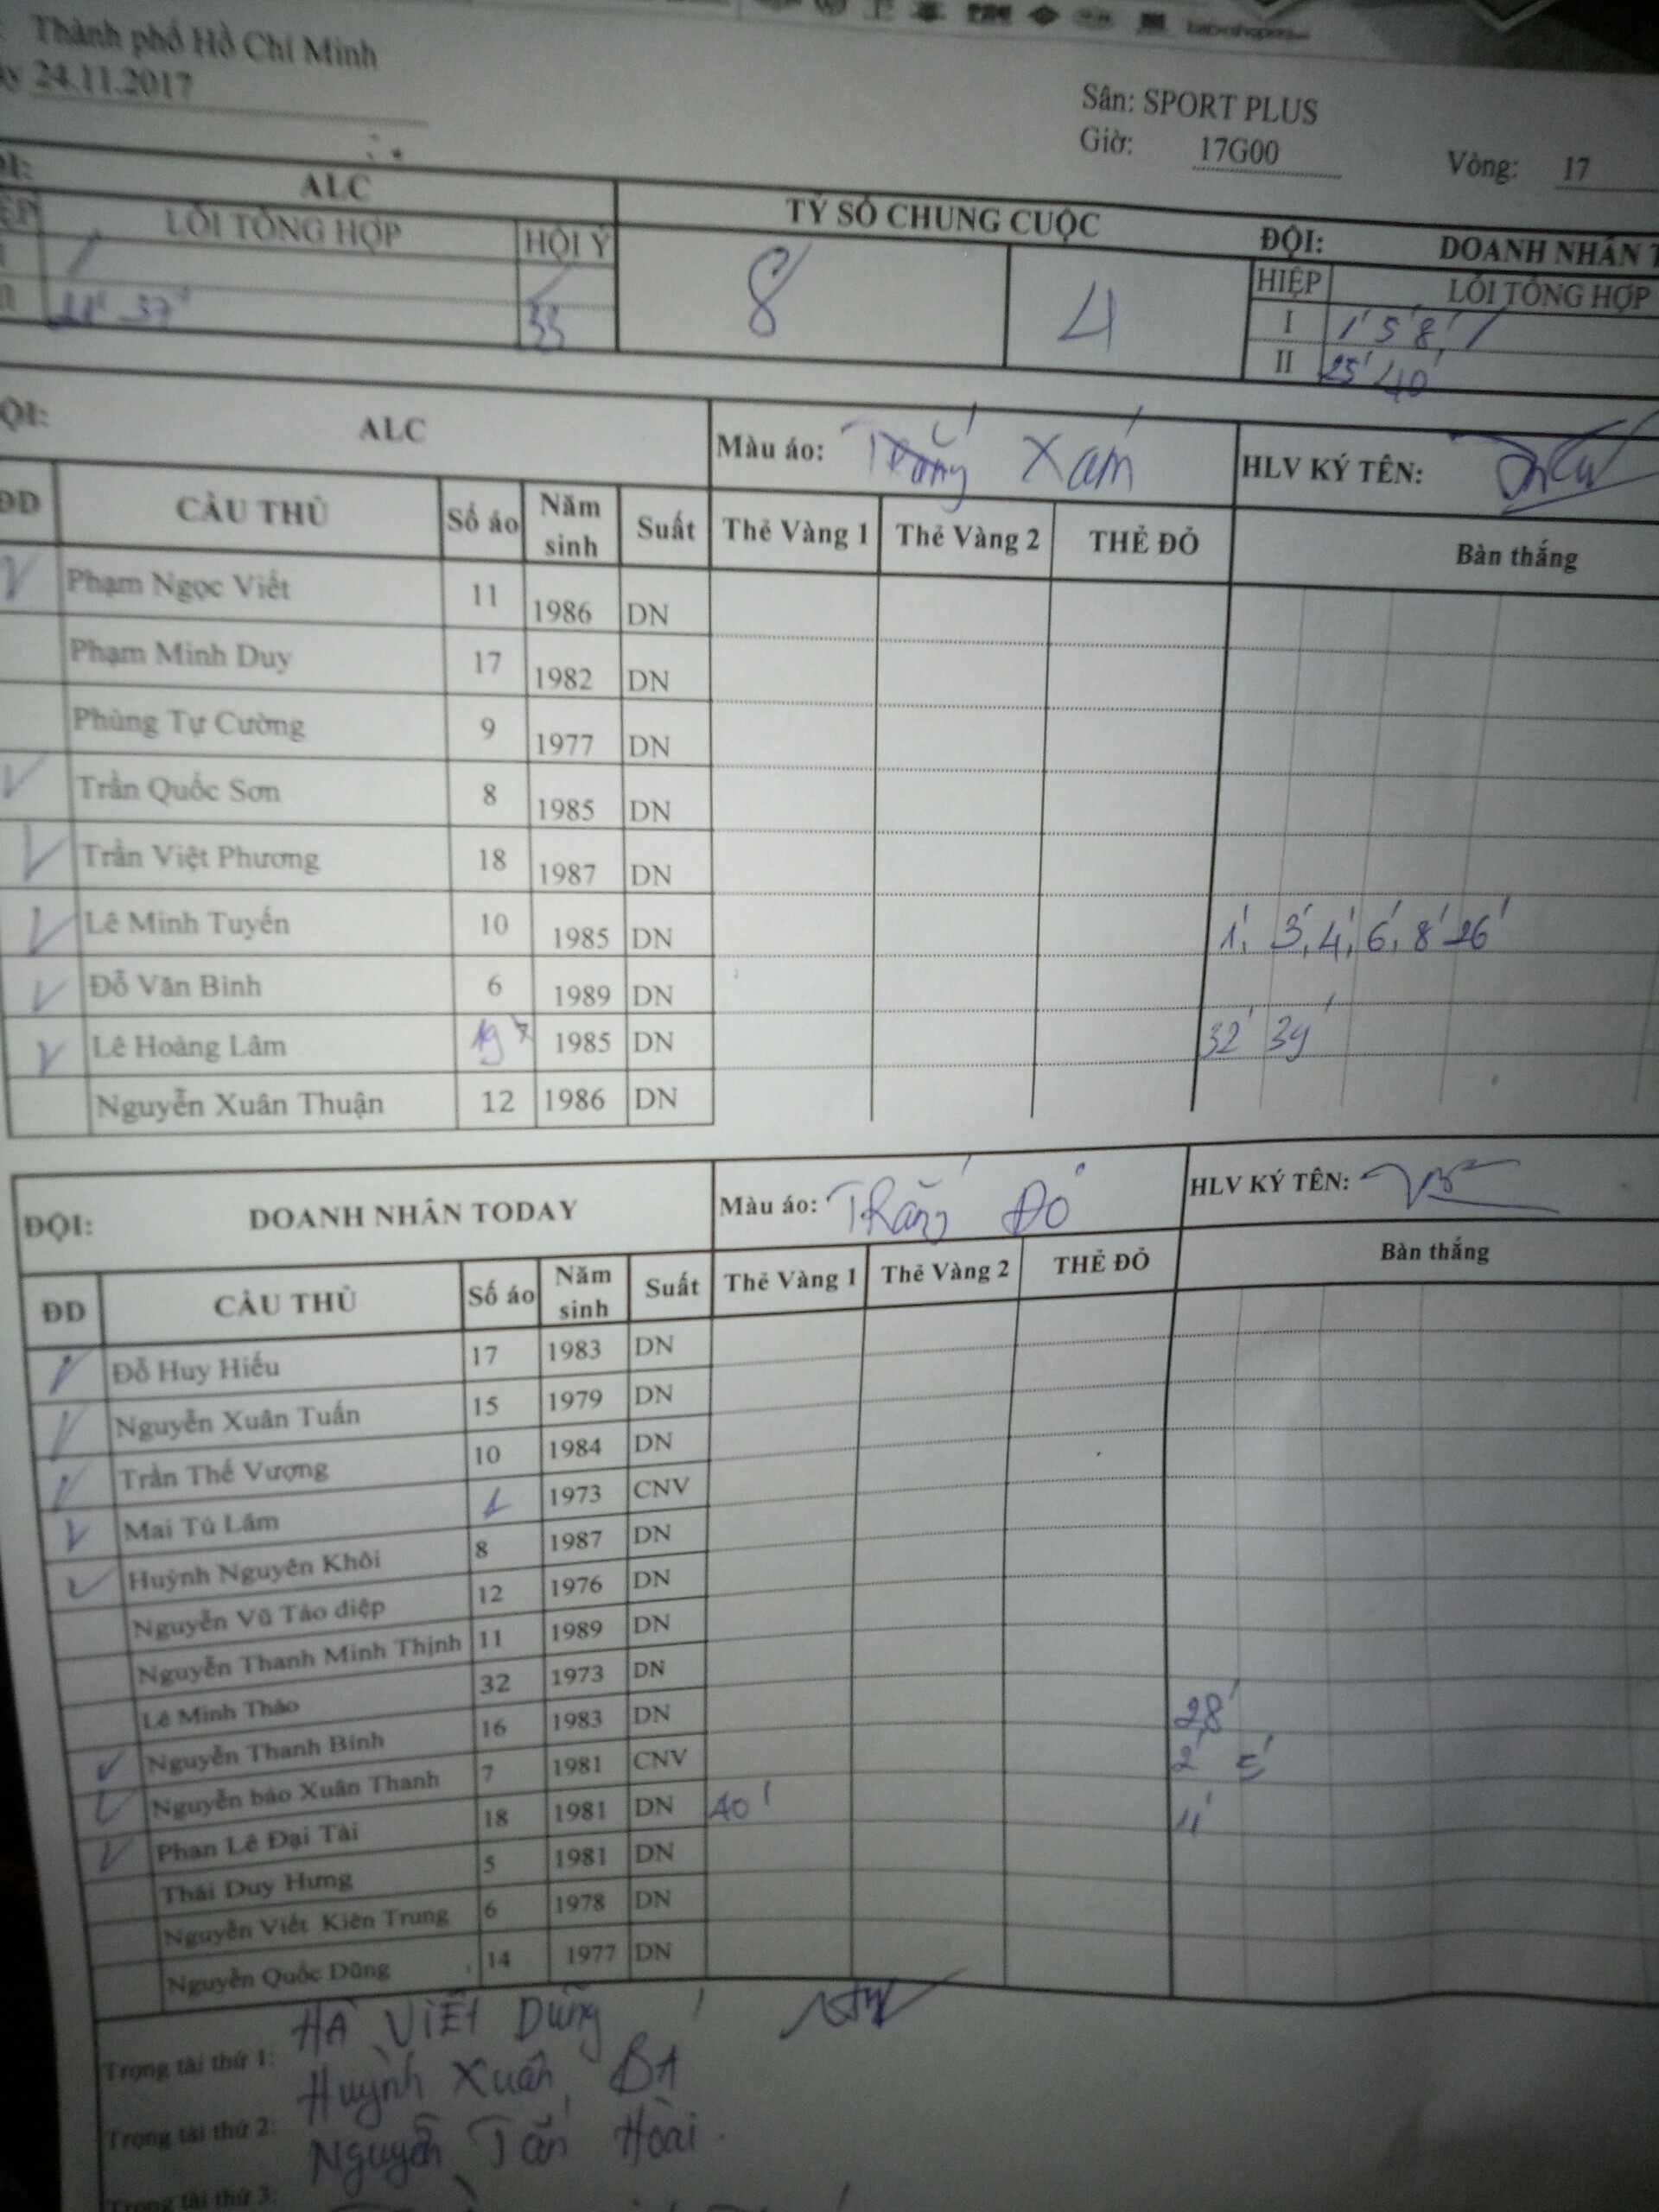 Thành phố Hồ Chí Minh
24.11.2017
Sân: SPORT PLUS
Giờ: 17G00 Vòng: 17
ALC TỶ SỐ CHUNG CUỘC ĐỘI: DOANH NHÂN T
LỖI TỔNG HỢP HỘI Ý 8 4 HIỆP LỖI TỔNG HỢP
I 1' 5' 8' /
37' 33 II 25' 40'
ALC Màu áo: Trắng Xám HLV KÝ TÊN:
ĐD CẦU THỦ Số áo Năm sinh Suất Thẻ Vàng 1 Thẻ Vàng 2 THẺ ĐỎ Bàn thắng
Phạm Ngọc Viết 11 1986 DN
Phạm Minh Duy 17 1982 DN
Phùng Tự Cường 9 1977 DN
Trần Quốc Sơn 8 1985 DN
Trần Việt Phương 18 1987 DN
Lê Minh Tuyến 10 1985 DN 1', 3', 4', 6', 8' 26'
Đỗ Văn Bình 6 1989 DN
Lê Hoàng Lâm 19 1985 DN 32' 39'
Nguyễn Xuân Thuận 12 1986 DN
ĐỘI: DOANH NHÂN TODAY Màu áo: Trắng Đỏ HLV KÝ TÊN:
ĐD CẦU THỦ Số áo Năm sinh Suất Thẻ Vàng 1 Thẻ Vàng 2 THẺ ĐỎ Bàn thắng
Đỗ Huy Hiếu 17 1983 DN
Nguyễn Xuân Tuấn 15 1979 DN
Trần Thế Vượng 10 1984 DN
Mai Tú Lâm 1 1973 CNV
Huỳnh Nguyên Khôi 8 1987 DN
Nguyễn Vũ Tảo diệp 12 1976 DN
Nguyễn Thanh Minh Thịnh 11 1989 DN
Lê Minh Thảo 32 1973 DN
Nguyễn Thanh Bình 16 1983 DN 28'
Nguyễn bảo Xuân Thanh 7 1981 CNV 2' 5'
Phan Lê Đại Tài 18 1981 DN 40' 11'
Thái Duy Hưng 5 1981 DN
Nguyễn Viết Kiên Trung 6 1978 DN
Nguyễn Quốc Dũng 14 1977 DN
Trọng tài thứ 1: Hà Viết Dũng
Trọng tài thứ 2: Huỳnh Xuân BA
Trọng tài thứ 3: Nguyễn Tấn Hoài